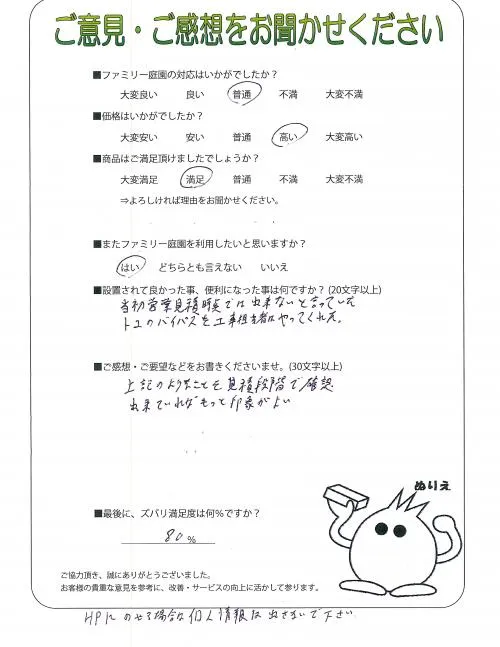 ご意見・ご感想をお聞かせください
■ファミリー庭園の対応はいかがでしたか？
大変良い 良い 普通 不満 大変不満
■価格はいかがでしたか？
大変安い 安い 普通 高い 大変高い
■商品はご満足頂けましたでしょうか？
大変満足 満足 普通 不満 大変不満
⇒よろしければ理由をお聞かせください。
■またファミリー庭園を利用したいと思いますか？
はい どちらとも言えない いいえ
■設置されて良かった事、便利になった事は何ですか？(20文字以上)
当初営業見積時点では出来ないと言っていた
トユのバイパスを工事担当者はやってくれた。
■ご感想・ご要望などをお書きくださいませ。(30文字以上)
上記のようなことを見積段階で確認
出来ていればもっと印象がよい
■最後に、ズバリ満足度は何%ですか？
80%
ぬりえ
ご協力頂き、誠にありがとうございました。
お客様の貴重な意見を参考に、改善・サービスの向上に活かして参ります。
HPにのせる場合は個人情報は出さないで下さい